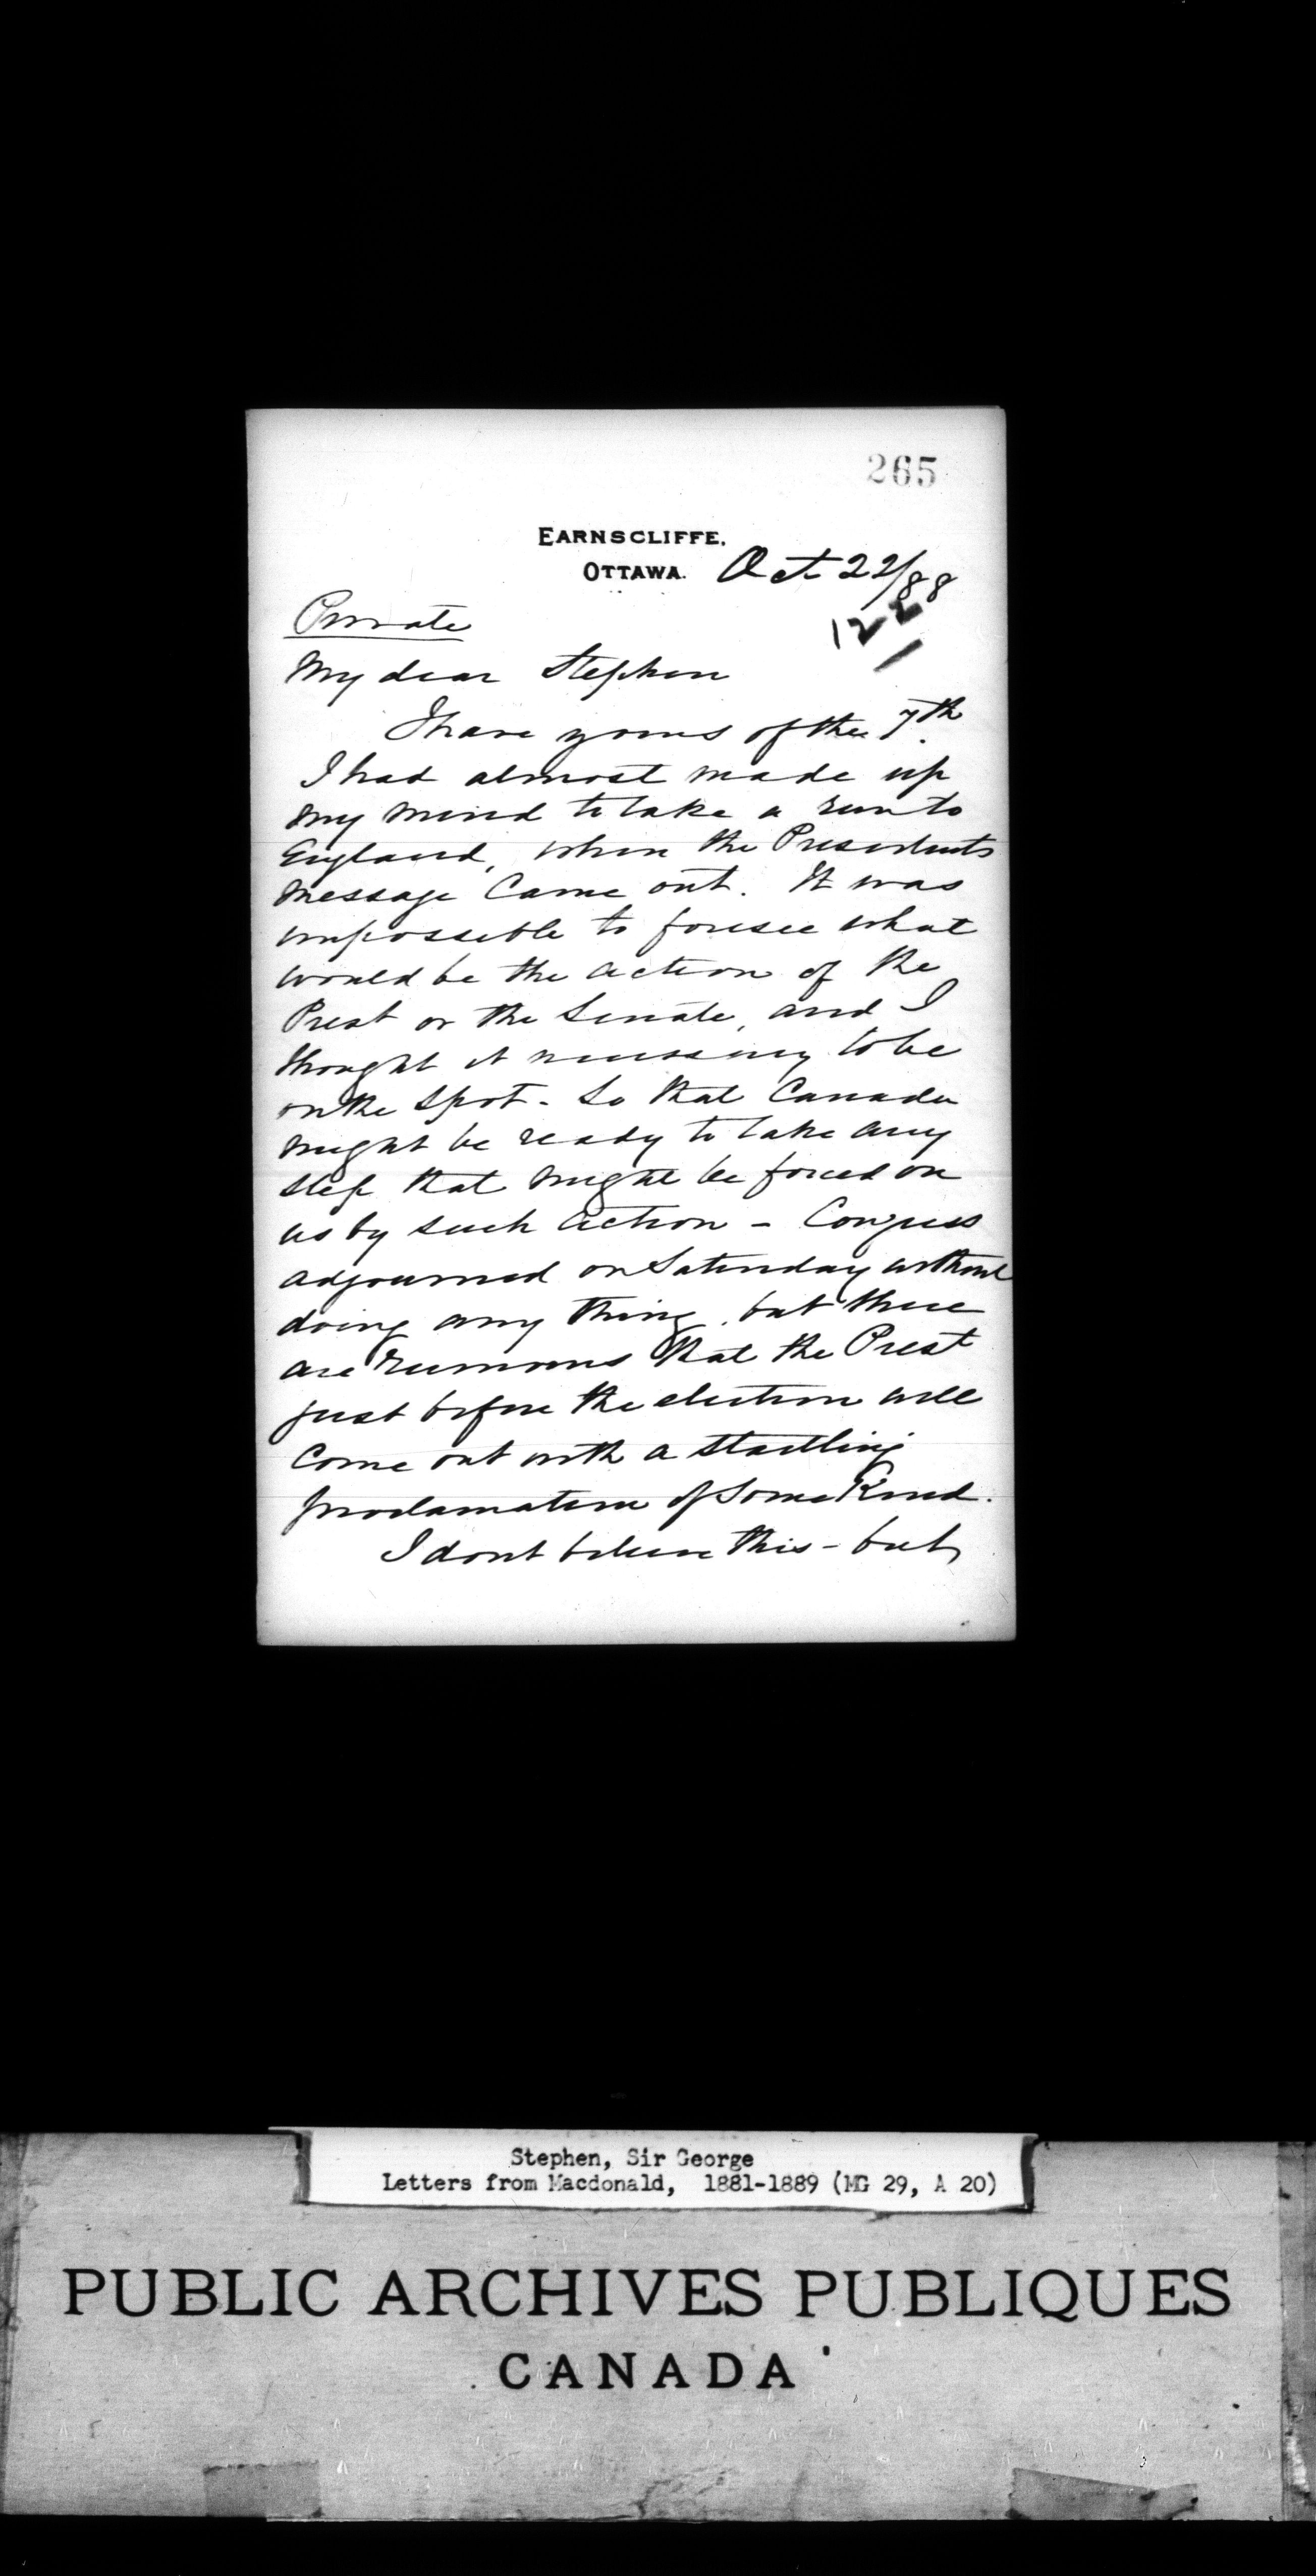 265
EARNSCLIFFE,
OTTAWA. Oct 22/88
122
Private
My dear Stephen
I have yours of the 7th.
I had almost made up
my mind to take a run to
England, when the Presidents
message came out. It was
impossible to foresee what
would be the action of the
Prest or the Senate, and I
thought it necessary to be
on the spot - so that Canada
might be ready to take any
step that might be forced on
us by such action - Congress
adjourned on Saturday without
doing any thing, but there
are rumours that the Prest
just before the election will
come out with a startling
proclamation of some kind.
I dont believe this - but
Stephen, Sir George
Letters from Macdonald, 1881-1889 (MG 29, A 20)
PUBLIC ARCHIVES PUBLIQUES
CANADA